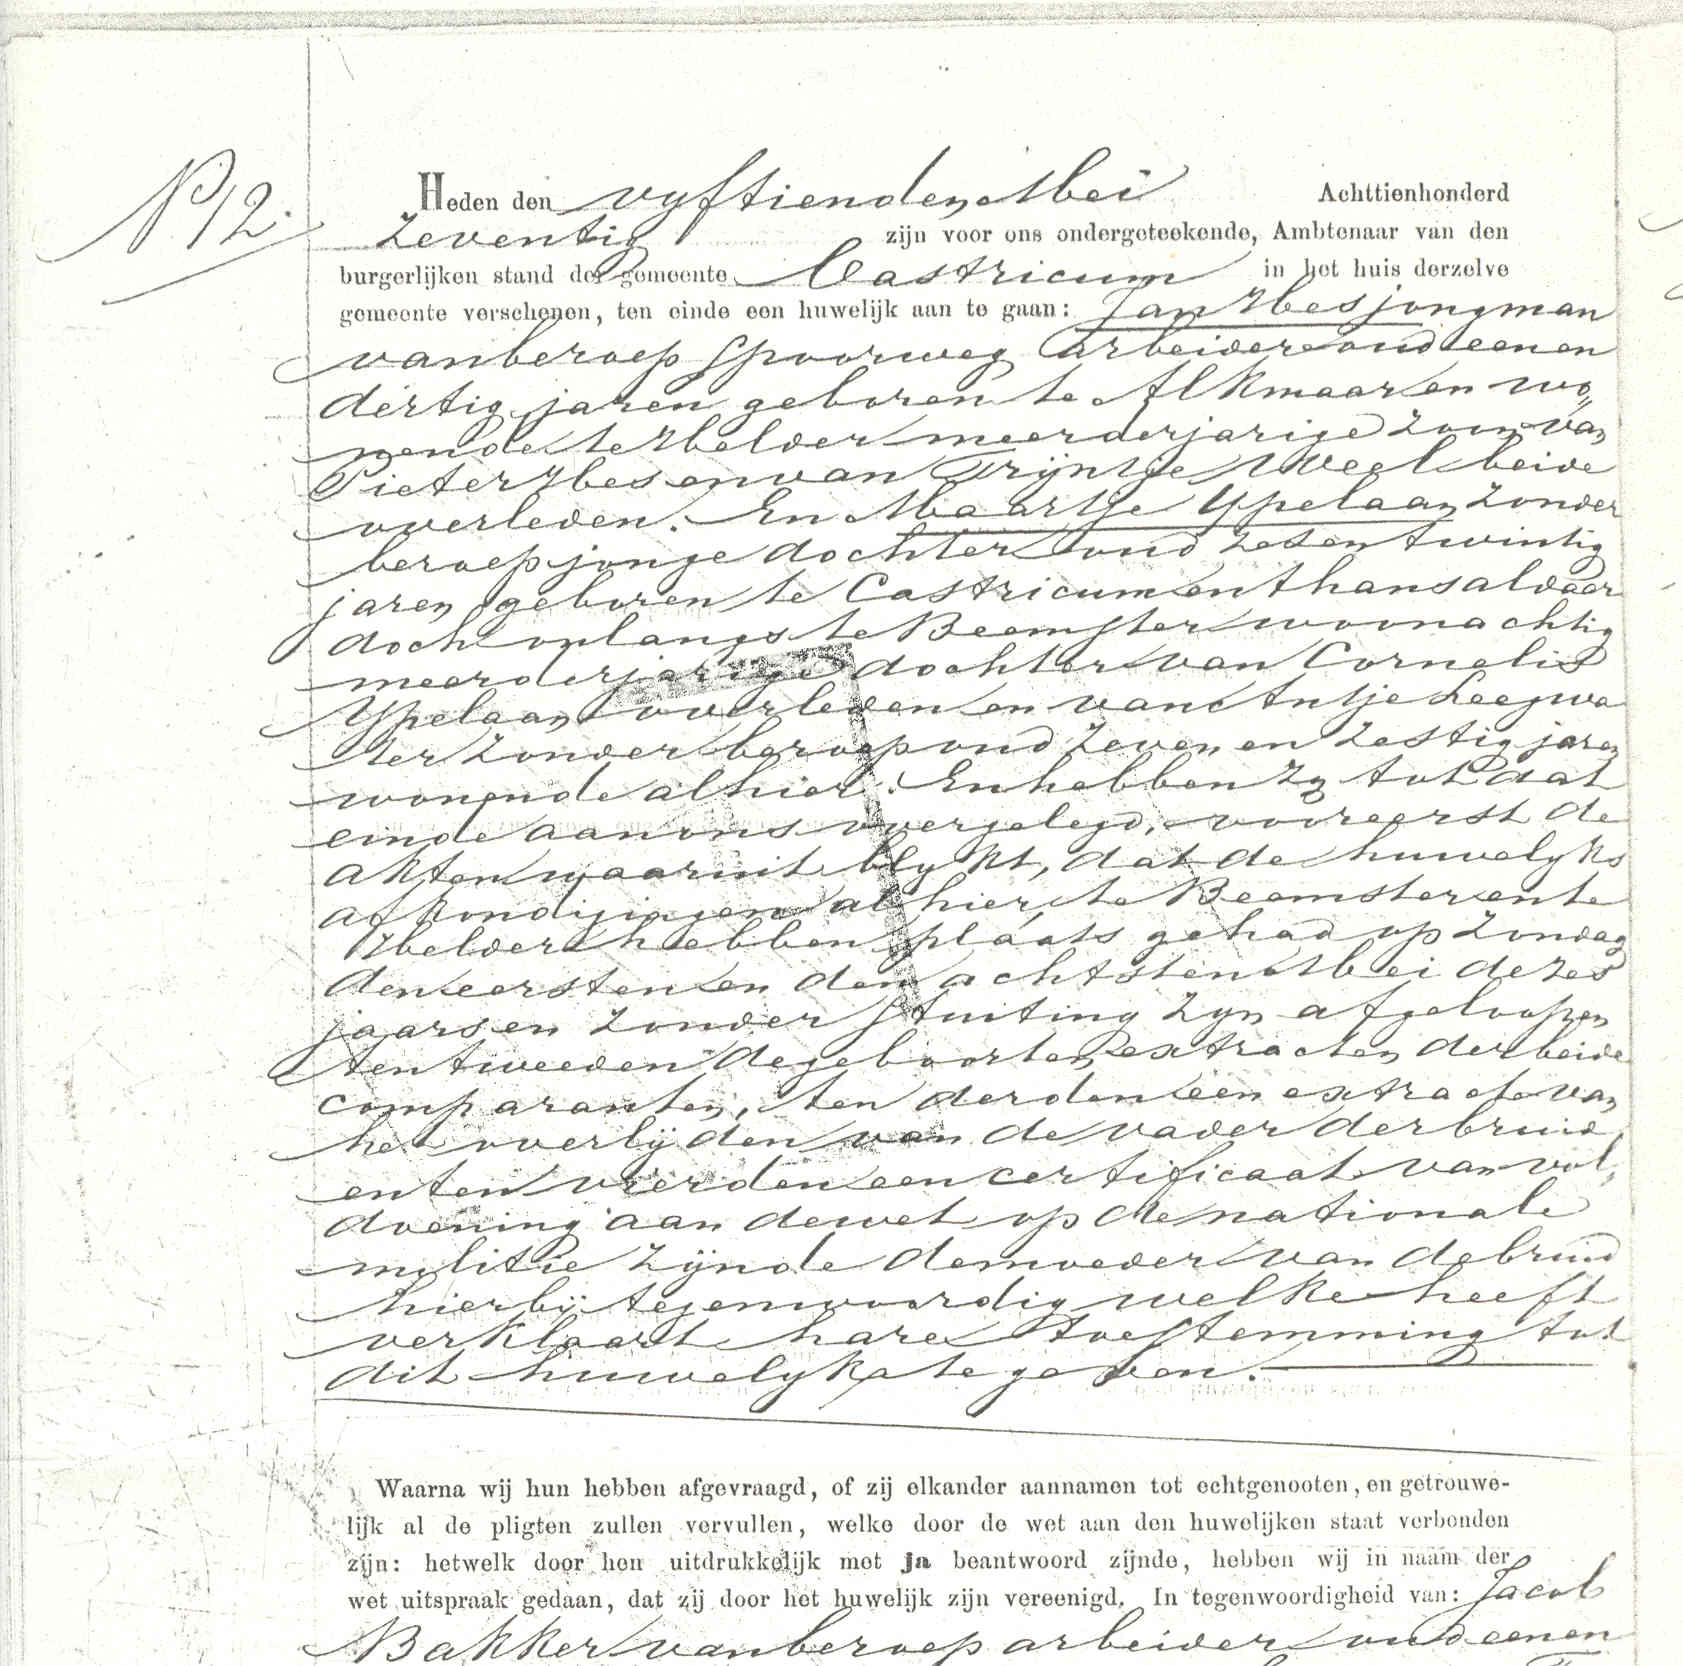 N° 12.
Heden den vyftienden Mei Achttienhonderd
Zeventig zijn voor ons ondergeteekende, Ambtenaar van den
burgerlijken stand der gemeente Castricum in het huis derzelve
gemeente verschenen, ten einde een huwelijk aan te gaan: Jan Hes jongman
van beroep Spoorweg arbeider oud een en
dertig jaren geboren te Alkmaar en wo„
nende te Helder meerderjarige zoon van
Pieter Hes en van Trijntje Weel beide
overleden. En Maartje Ypelaan zonder
beroep jonge dochter oud zes en twintig
jaren geboren te Castricum en thans aldaar
doch onlangs te Beemster woonachtig
meerderjarige dochter van Cornelis
Ypelaan overleden en van Antje Leegwa
ter zonder beroep oud zeven en zestig jaren
wonende alhier. En hebben zy tot dat
einde aan ons overgelegd, vooreerst de
akten waaruit blykt, dat de huwelyks
afkondigingen alhier te Beemster en te
Helder hebben plaats gehad op zondag
den eersten en den achtsten Mei dezes
jaars en zonder stuiting zyn afgeloopen
ten tweeden de geboorten extracten der beide
comparanten, ten derden een extract van
het overlijden van de vader der bruid
en ten vierden een certificaat van vol„
doening aan de wet op de nationale
militie zijnde de moeder van de bruid
hierbij tegenwoordig welke heeft
verklaart hare toestemming tot
dit huwelyk te geven.
Waarna wij hun hebben afgevraagd, of zij elkander aannamen tot echtgenooten, en getrouwe-
lijk al de pligten zullen vervullen, welke door de wet aan den huwelijken staat verbonden
zijn: hetwelk door hen uitdrukkelijk met ja beantwoord zijnde, hebben wij in naam der
wet uitspraak gedaan, dat zij door het huwelijk zijn vereenigd. In tegenwoordigheid van: Jacob
Bakker van beroep arbeider oud een en